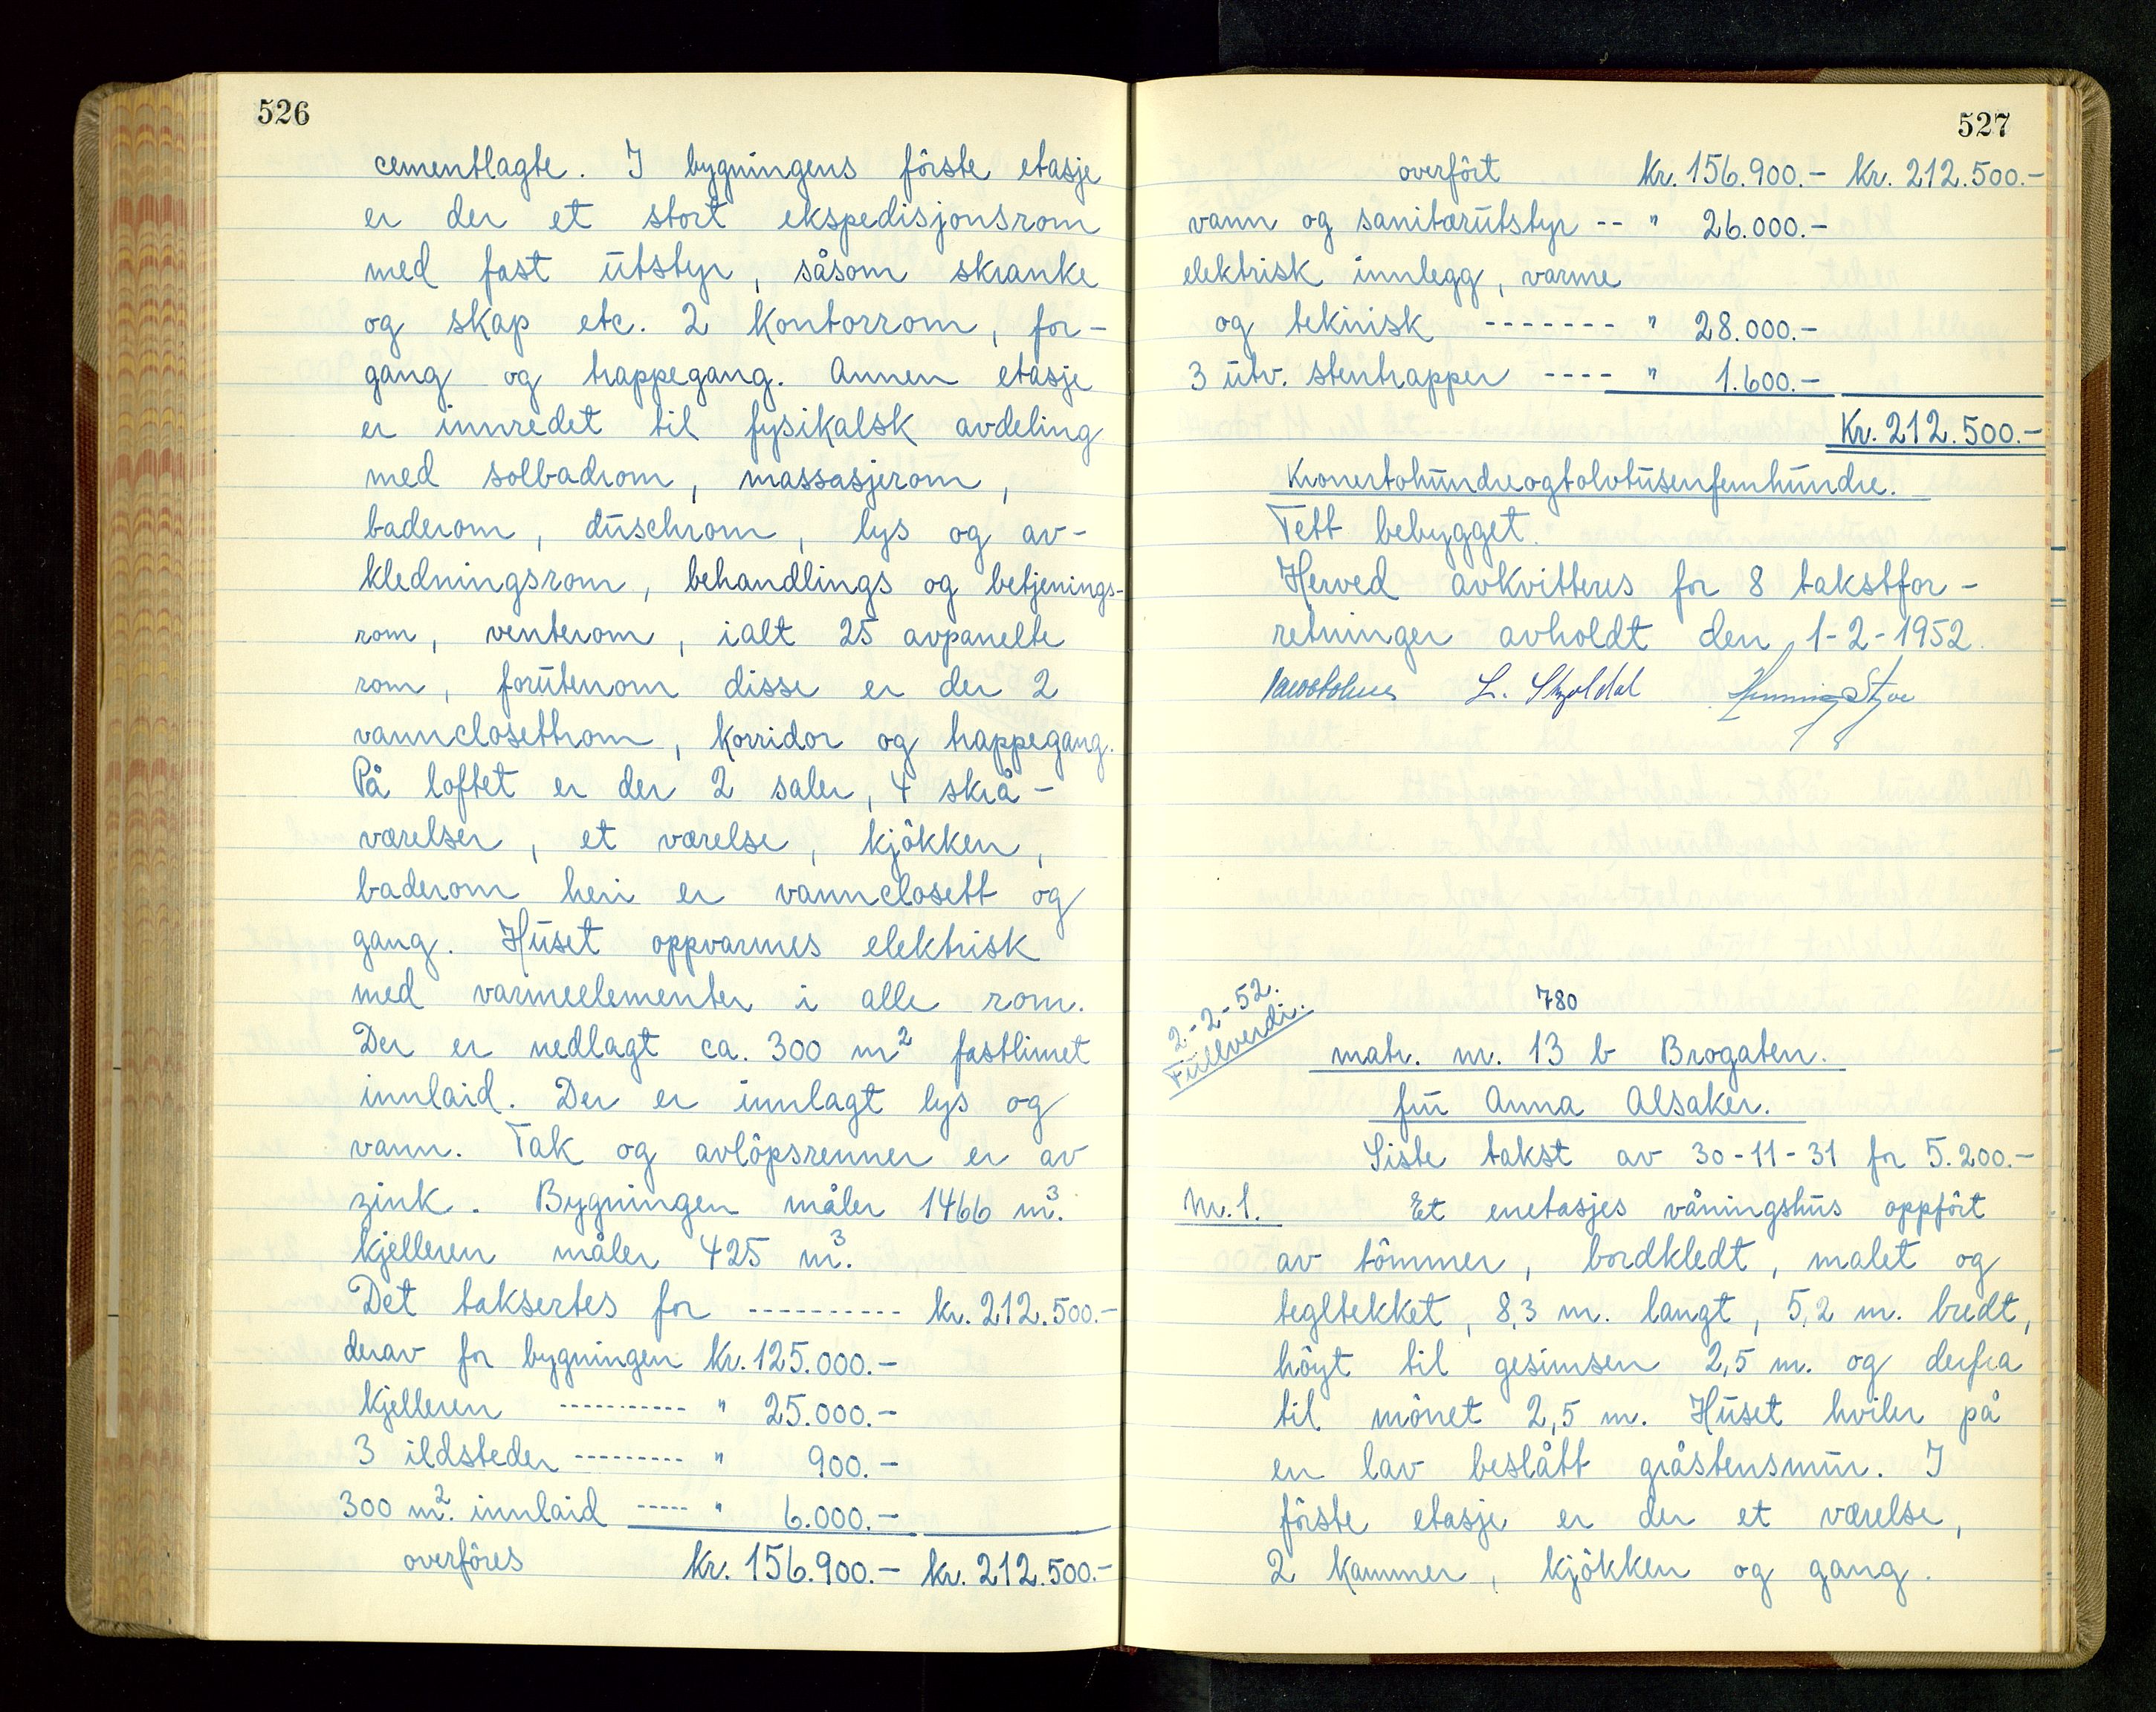 526
cementlagte. I bygningens förste etasje
er der et stort ekspedisjonsrom
med fast utstyr, såsom skranke
og skap etc. 2 kontorrom, for-
gang og trappegang. Annen etasje
er innredet til fysikalsk avdeling
med solbadrom, massasjerom,
baderom, duschrom, lys og av-
kledningsrom, behandlings og betjenings-
rom, venterom, ialt 25 avpanelte
rom, forutenom disse er der 2
vannclosettrom, korridor og trappegang.
På loftet er der 2 saler, 4 skrå-
værelser, et værelse, kjökken,
baderom heri er vannclosett og
gang. Huset oppvarmes elektrisk
med varmeelementer i alle rom.
Der er nedlagt ca. 300 m² fastlimet
innlaid. Der er innlagt lys og
vann. Tak og avlöpsrenner er av
zink. Bygningen måler 1466 m³.
Kjelleren måler 425 m³.
Det taksertes for ---------- kr. 212.500.-
derav for bygningen kr. 125.000.-
kjelleren ----------- " 25.000.-
3 ildsteder --------- " 900.-
300 m². innlaid ----- " 6.000.-
overföres kr. 156.900.- kr. 212.500.-
527
overfört kr. 156.900.- kr. 212.500.-
vann og sanitærutstyr -- " 26.000.-
elektrisk innlegg, varme
og teknisk ------- " 28.000.-
3 utv. stentrapper ---- " 1.600.-
Kr. 212.500.-
Kronertohundreogtolvtusenfemhundre.
Tett bebygget.
Herved avkvitteres for 8 takstfor-
retninger avholdt den 1-2-1952.
L. Skjoldal Henning Styve
2-2-52.
Fullverdi.
780
matr. nr. 13 b Brogaten.
fru Anna Alsaker.
Siste takst av 30-11-31 for 5.200.-
Nr. 1. Et enetasjes våningshus oppfört
av tömmer, bordkledt, malet og
tegltekket, 8,3 m. langt, 5,2 m. bredt,
höyt til gesimsen 2,5 m. og derfra
til mönet 2,5 m. Huset hviler på
en lav beslått gråstensmur. I
förste etasje er der et værelse,
2 kammer, kjökken og gang.